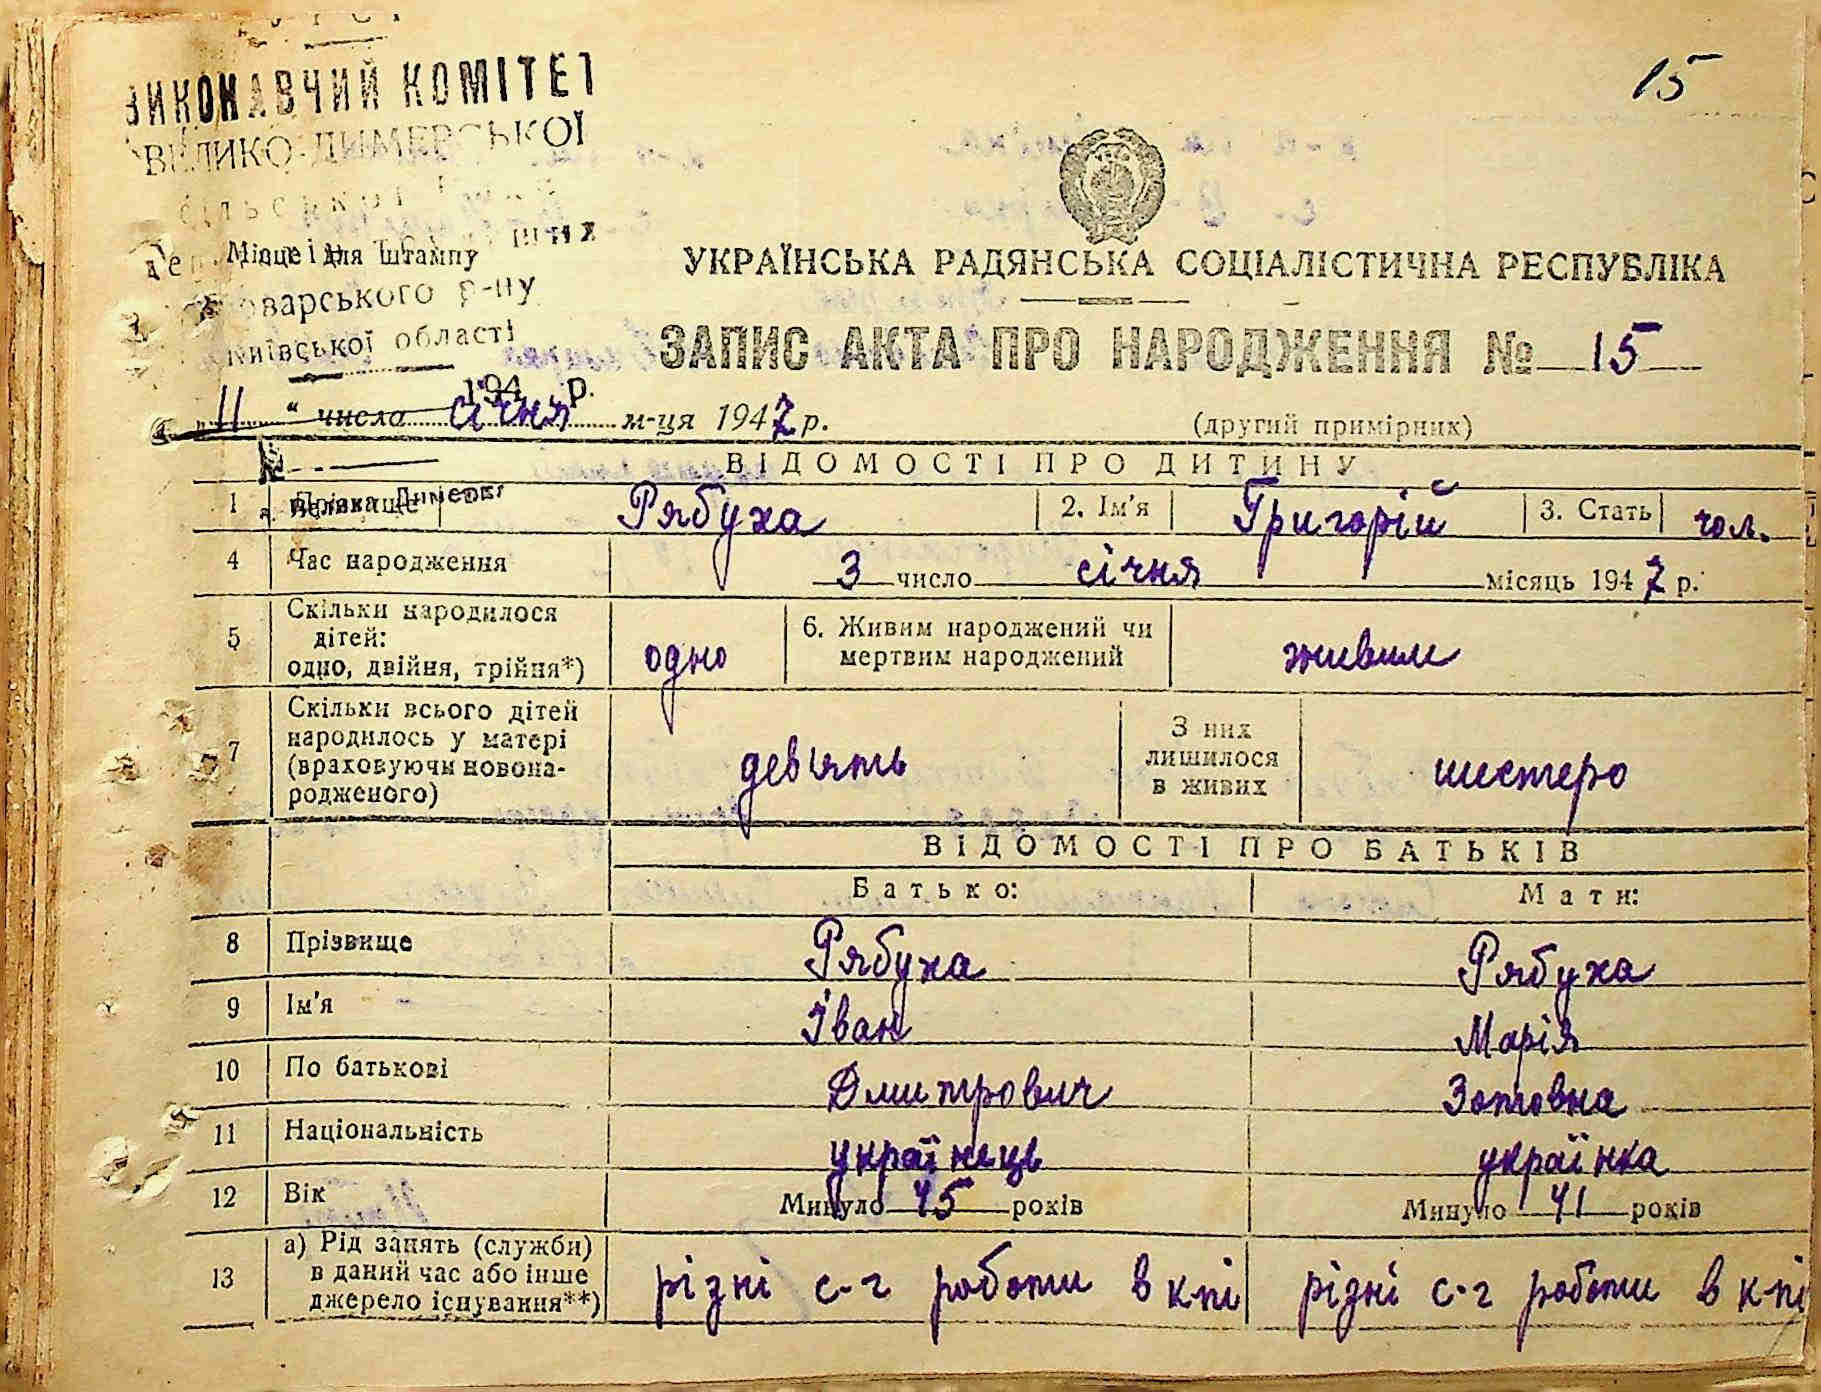 15
ВИКОНАВЧИЙ КОМІТЕТ
ВЕЛИКО-ДИМЕРСЬКОЇ
сільської
Місце для штампу
Броварського р-ну
Київської області
194 р.
УКРАЇНСЬКА РАДЯНСЬКА СОЦІАЛІСТИЧНА РЕСПУБЛІКА
ЗАПИС АКТА ПРО НАРОДЖЕННЯ № 15
„11“ число січня м-ця 1947 р.
(другий примірник)
ВІДОМОСТІ ПРО ДИТИНУ
Велика Димерка
1 Прізвище Рябуха 2. Ім'я Григорій 3. Стать чол.
4 Час народження 3 число січня місяць 1947 р.
5 Скільки народилося
дітей:
одно, двійня, трійня*) одно
6. Живим народжений чи
мертвим народжений живим
7 Скільки всього дітей
народилось у матері
(враховуючи новона-
родженого) девять
З них
лишилося
в живих шестеро
ВІДОМОСТІ ПРО БАТЬКІВ
Батько: Мати:
8 Прізвище Рябуха Рябуха
9 Ім'я Іван Марія
10 По батькові Дмитрович Зотовна
11 Національність українець українка
12 Вік Минуло 45 років Минуло 41 років
13 а) Рід занять (служби)
в даний час або інше
джерело існування**) різні с-г роботи в к-пі різні с-г роботи в к-пі